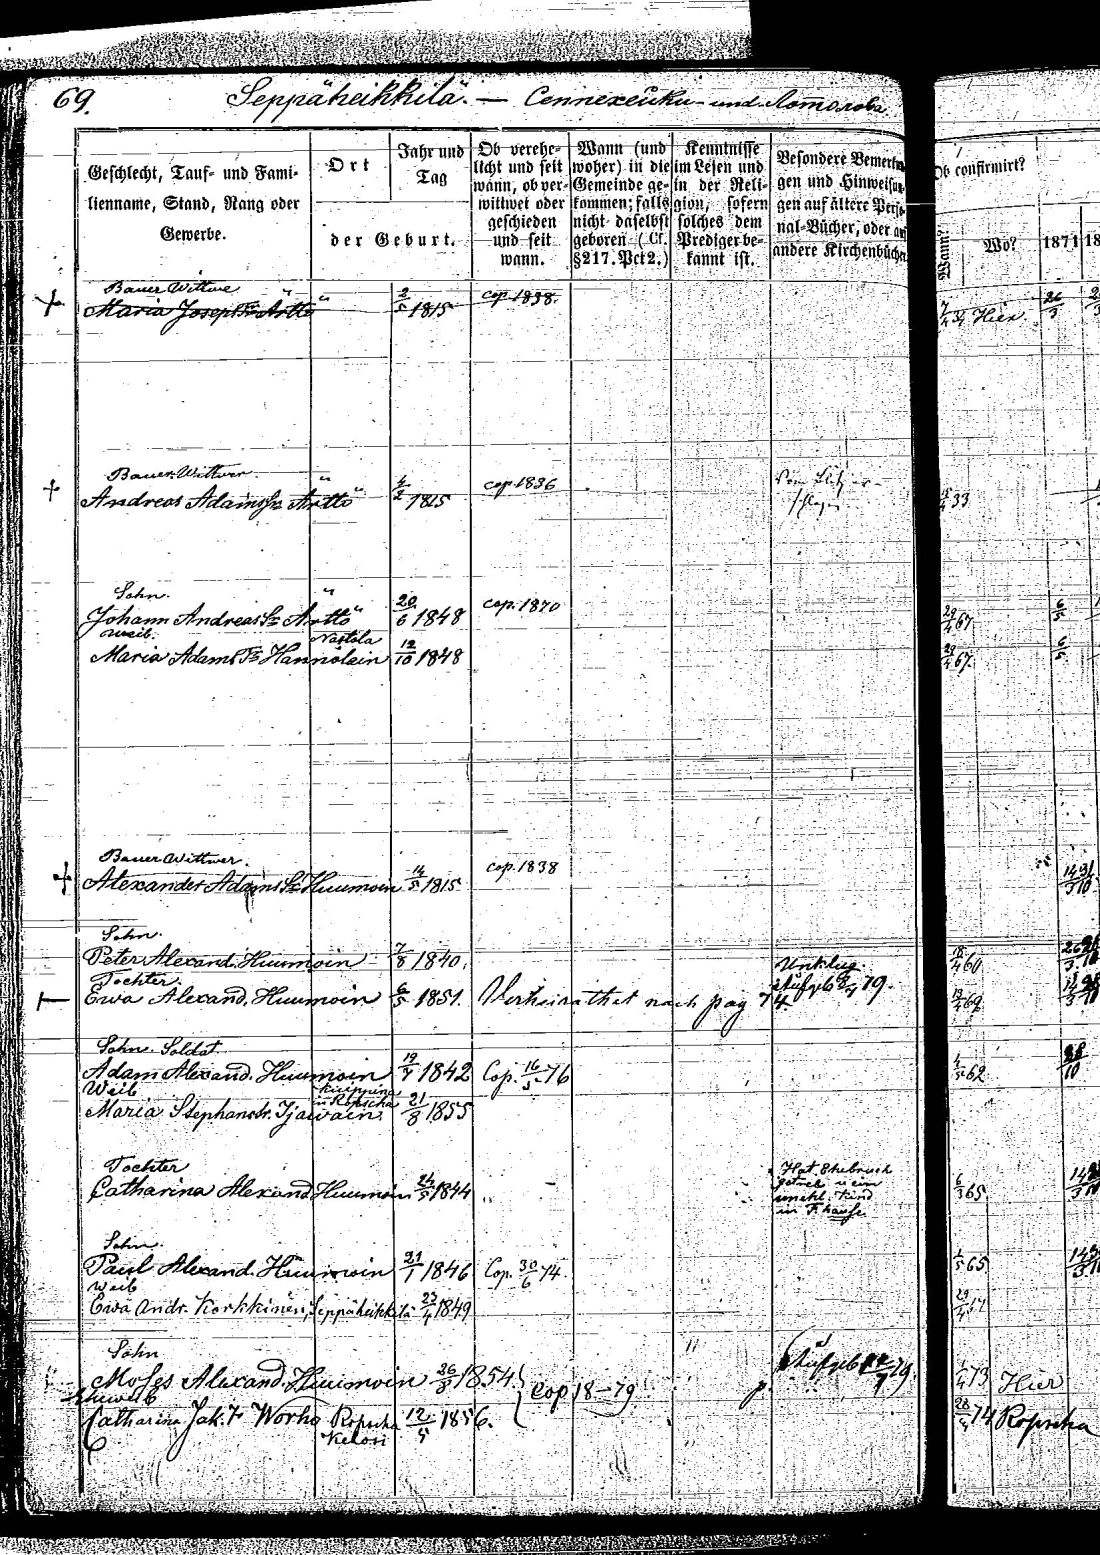 69. Seppäheikkilä. — Сеппехейки und Ломолова
Geschlecht, Tauf- und Fami-
lienname, Stand, Rang oder
Gewerbe.
Ort
Jahr und
Tag
der Geburt.
Ob verehe-
licht und seit
wann, ob ver-
wittwet oder
geschieden
und seit
wann.
Wann (und
woher) in die
Gemeinde ge-
kommen; falls
nicht daselbst
geboren (Cf.
§217. Pct 2.)
Kenntnisse
im Lesen und
in der Reli-
gion, sofern
solches dem
Prediger be-
kannt ist.
Besondere Bemerkun-
gen und Hinweisun-
gen auf ältere Perso-
nal-Bücher, oder au
andere Kirchenbüche
Ob confirmirt?
Wann?
Wo?
1871
18
Bauer Wittwe
Maria Joseph Tr Arttö " 2/5 1815 cop. 1838. 7/4 34 Hier. 26/3
Bauer. Wittwer.
Andreas Adams Sn Arttö " 1815 cop. 1836 33
Sohn.
Johann Andreas Sn Arttö " 20/6 1848 cop. 1870 29/4 67 6/5
Weib.
Maria Adams Tr Hannolein 12/10 1848 29/4 67. 6/5
Bauer Wittwer.
Alexander Adams Sn Huumoin 14/5 1815 cop. 1838
Sohn.
Peter Alexand. Huumoin 7/8 1840. 60
Tochter.
Ewa Alexand. Huumoin 6/5 1851. Verheirathet nach pag 74. 69
Sohn. Soldat
Adam Alexand. Huumoin 19/7 1842 Cop. 16/5 76 62
Weib
Maria Stephanstr. Tjawain. Ropscha 21/8 1855
Tochter
Catharina Alexand Huumoin 24/5 1844 6/3 65
Hat Ehebruch
getrieb. u ein
unehl. Kind
Sohn.
Paul Alexand. Huumoin 21/1 1846 Cop. 30/6 74. 65
Weib
Ewa Andr. Korkkinen, Seppäheikkilä 23/4 1849
Sohn
Moses Alexand. Huumoin 26/8 1854. Cop 18-79. 73 Hier
Eheweib
Catharina Jak. Tr Worho Ropscha 12/5 1856. 74 Ropscha
Kelosi